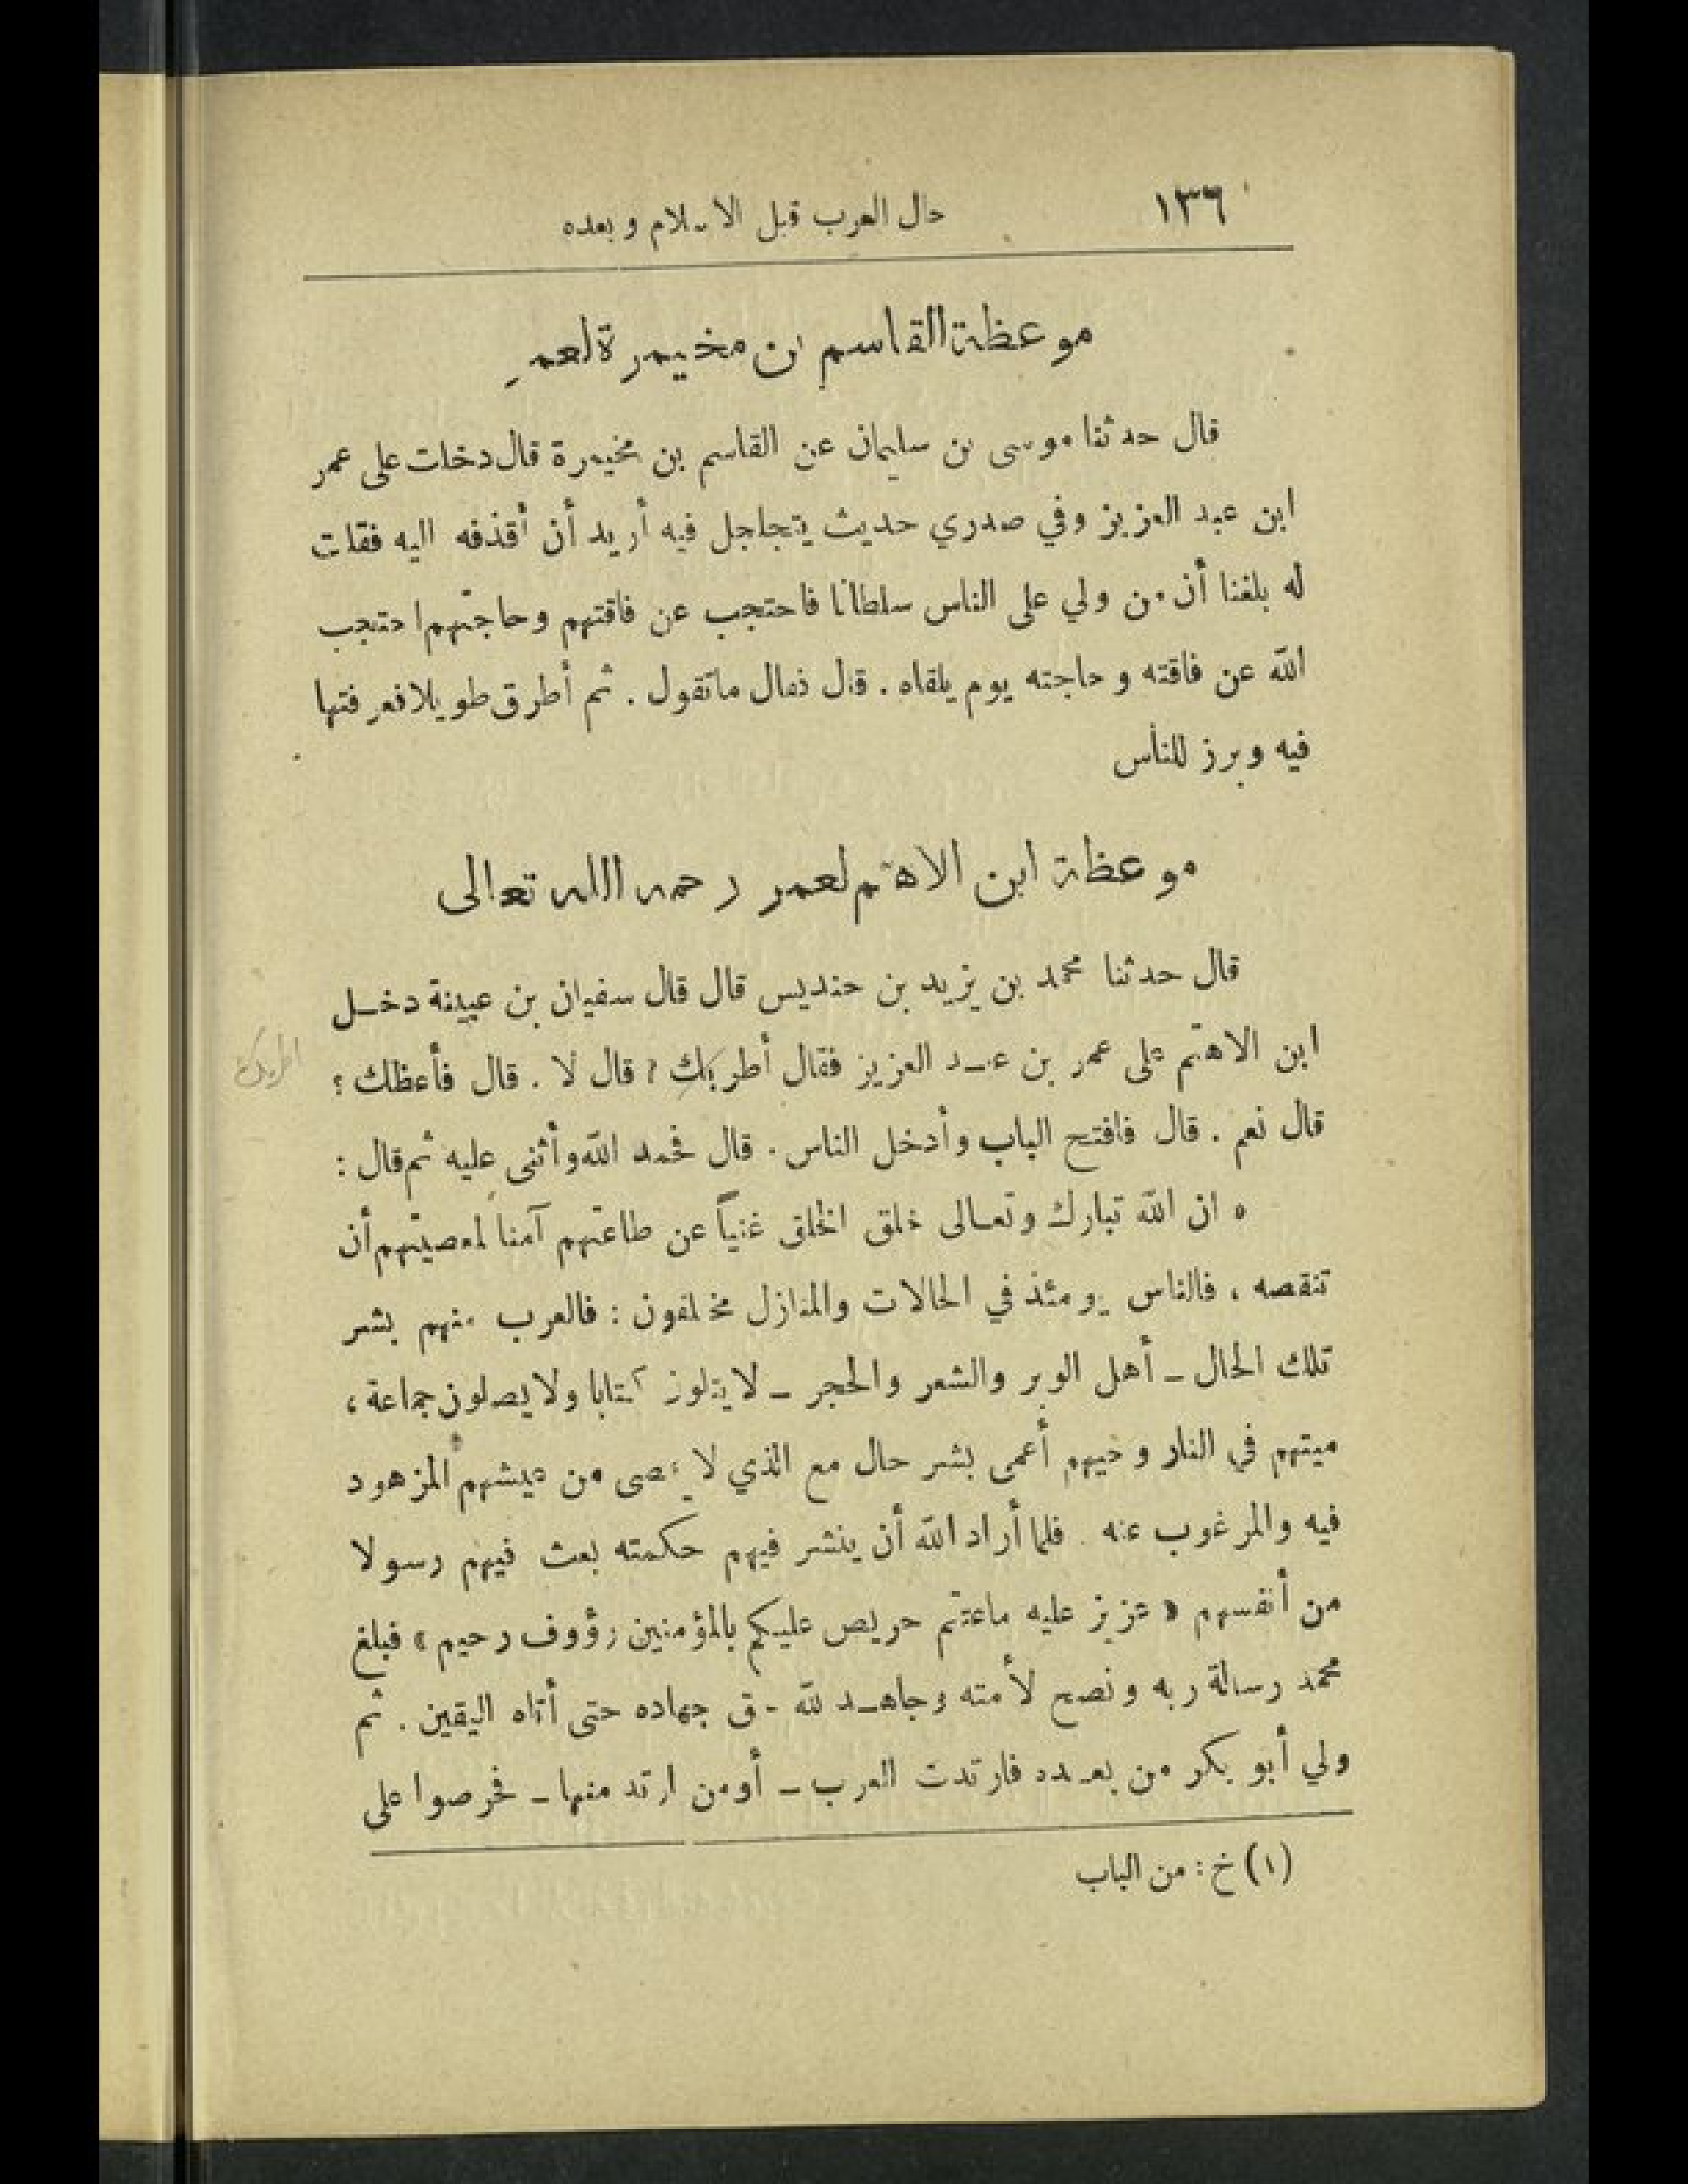 ١٣٦
حال العرب قبل الاسلام وبعده
موعظة القاسم بن مخيمرة لعمر
قال حدثنا موسى بن سليمان عن القاسم بن مخيمرة قال دخلت على عمر
ابن عبد العزيز وفي صدري حديث يتجلجل فيه أريد أن أقذفه اليه فقلت
له بلغنا أن من ولي على الناس سلطانا فاحتجب عن فاقتهم وحاجتهم احتجب
الله عن فاقته وحاجته يوم يلقاه . قال فقال ماتقول . ثم أطرق طويلا فعرفتها
فيه وبرز للناس
موعظة ابن الاهتم لعمر رحمه الله تعالى
قال حدثنا محمد بن يزيد بن حنديس قال قال سفيان بن عيينة دخل
ابن الاهتم على عمر بن عبد العزيز فقال أطربك ؟ قال لا . قال فأعظك ؟
قال نعم . قال فافتح الباب وأدخل الناس . قال فحمد الله وأثنى عليه ثم قال :
« ان الله تبارك وتعالى خلق الخلق غنياً عن طاعتهم آمناً لمعصيتهم أن
تنقصه ، فالناس يومئذ في الحالات والمنازل مختلفون : فالعرب منهم بشر
تلك الحال - أهل الوبر والشعر والحجر - لا يتلون كتابا ولا يصلون جماعة ،
ميتهم في النار وحيهم أعمى بشر حال مع الذي لا يحصى من عيشهم المزهود
فيه والمرغوب عنه . فلما أراد الله أن ينشر فيهم حكمته بعث فيهم رسولا
من أنفسهم « عزيز عليه ماعنتم حريص عليكم بالمؤمنين رؤوف رحيم » فبلغ
محمد رسالة ربه ونصح لأمته وجاهد لله حق جهاده حتى أتاه اليقين . ثم
ولي أبو بكر من بعده فارتدت العرب - أو من ارتد منها - فحرصوا على
(١) خ : من الباب